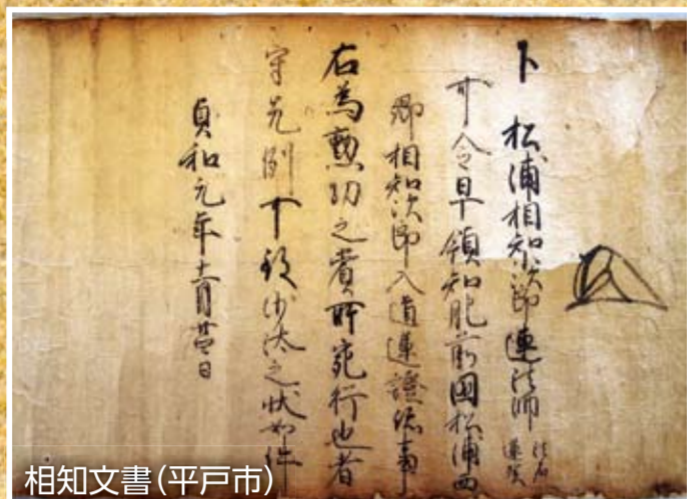 下 松浦相知次郎連法師 法名蓮賀
可令早領知肥前国松浦西
郷相知次郎入道蓮證跡事
右為勲功之賞所宛行也者
守先例可致沙汰之状如件
貞和元年十一月廿日
相知文書(平戸市)